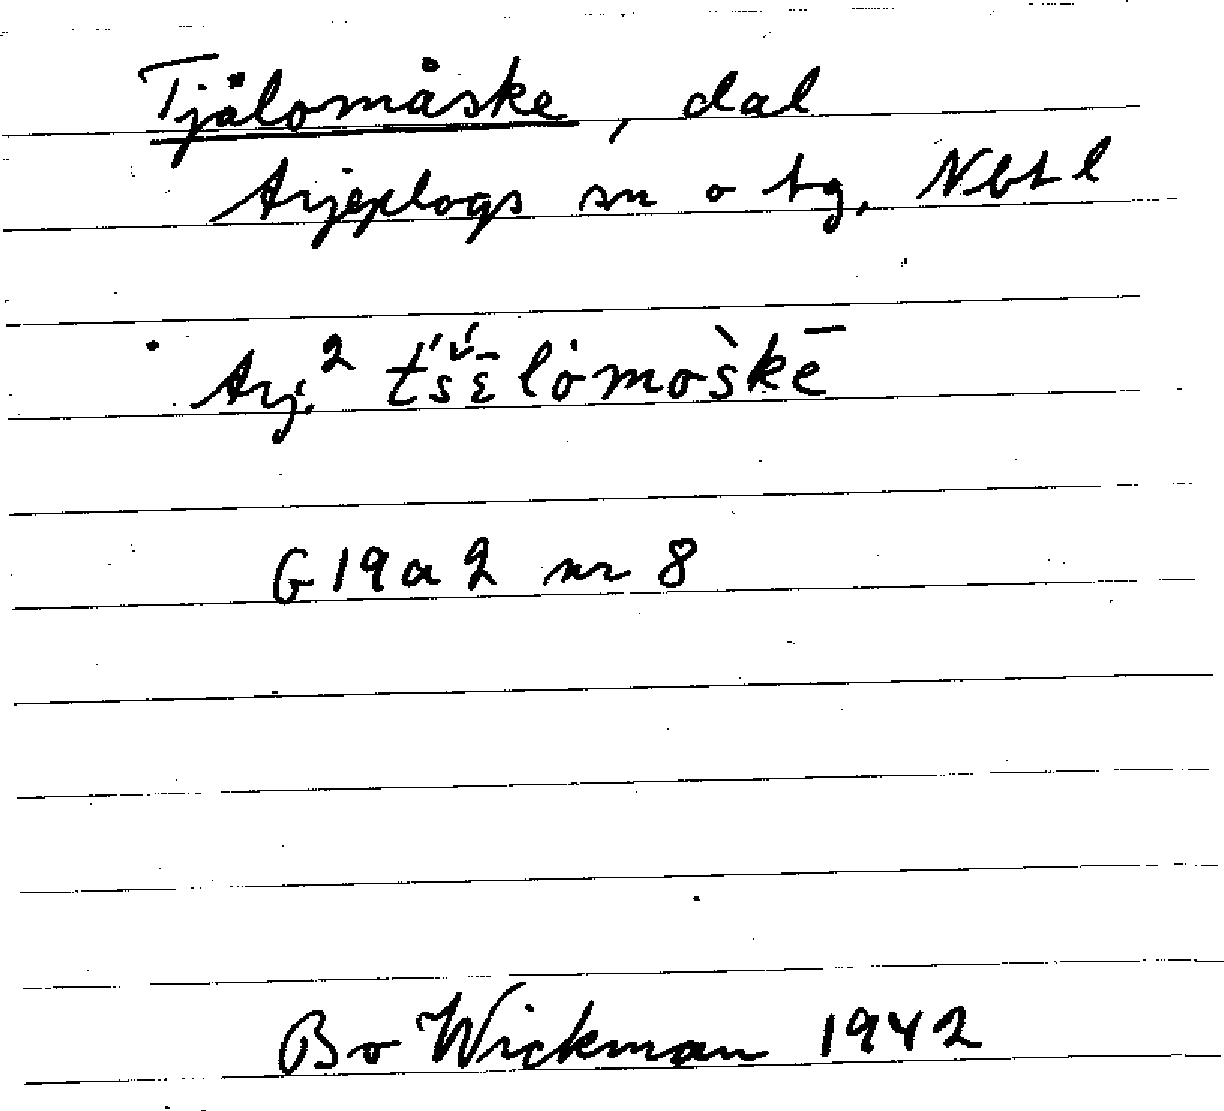 Tjålomåske, dal
Arjeplogs sn o tg, Nbtl
Arj.² t́š́ɛ̄lȯmos̀kē
G 19 a 2 nr 8
Bo Wickman 1942